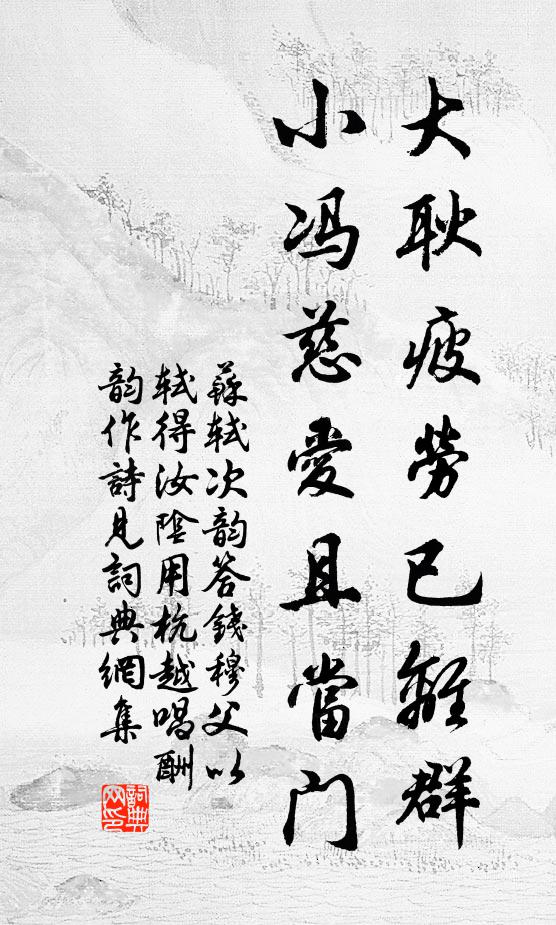 大耿疲勞已離群
小冯慈愛且當門
蘇轼次韵答錢穆父以
轼得汝陰用杭越唱酬
韵作詩見詞典網集
詞典网印